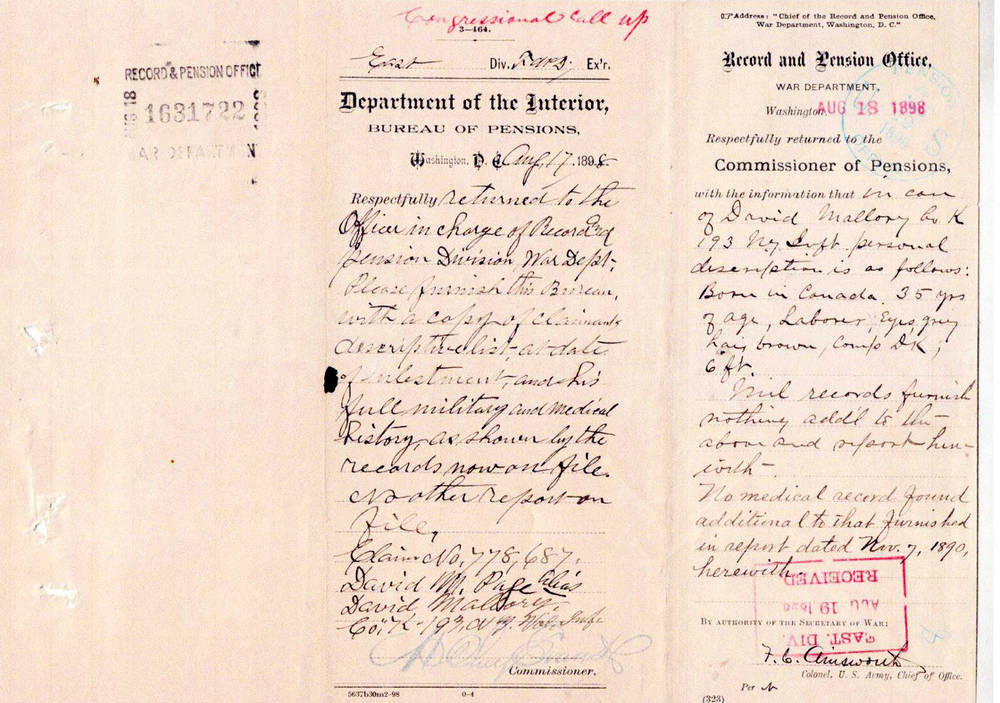 RECORD & PENSION OFFICE
AUG 18
1631722
1898
WAR DEPARTMENT
Congressional Call up
3—464.
East Div. Ex'r.
Department of the Interior,
BUREAU OF PENSIONS,
Washington, D. C. Aug. 17, 1898.
Respectfully returned to the
Officer in charge of Record and
Pension Division, War Dept.
Please furnish this Bureau,
with a copy of claimants
descriptive list, at date
of enlestment, and his
full military and medical
history, as shown by the
records now on file.
No other report on
file.
Claim No, 778,687.
David M. Page alias
David Mallory.
Co, "K"-193, N.Y. Vol. Inf.
Commissioner.
5637b30m2-98 0-4
Address: "Chief of the Record and Pension Office,
War Department, Washington, D. C."
Record and Pension Office,
WAR DEPARTMENT,
Washington, AUG 18 1898
Respectfully returned to the
Commissioner of Pensions,
with the information that in case
of David Mallory Co. K
193 N.Y. Inft. personal
description is as follows:
Born in Canada. 35 yrs
of age, Laborer, Eyes, grey
hair, brown, Comp DK,
6 ft.
Mil records furnish
nothing add'l to the
above and report here-
with-
No medical record found
additional to that furnished
in report dated Nov. 7, 1890,
herewith.
RECEIVED
AUG 19 1898
EAST. DIV.
BY AUTHORITY OF THE SECRETARY OF WAR:
F. C. Ainsworth
Colonel, U. S. Army, Chief of Office.
Per N
(323)